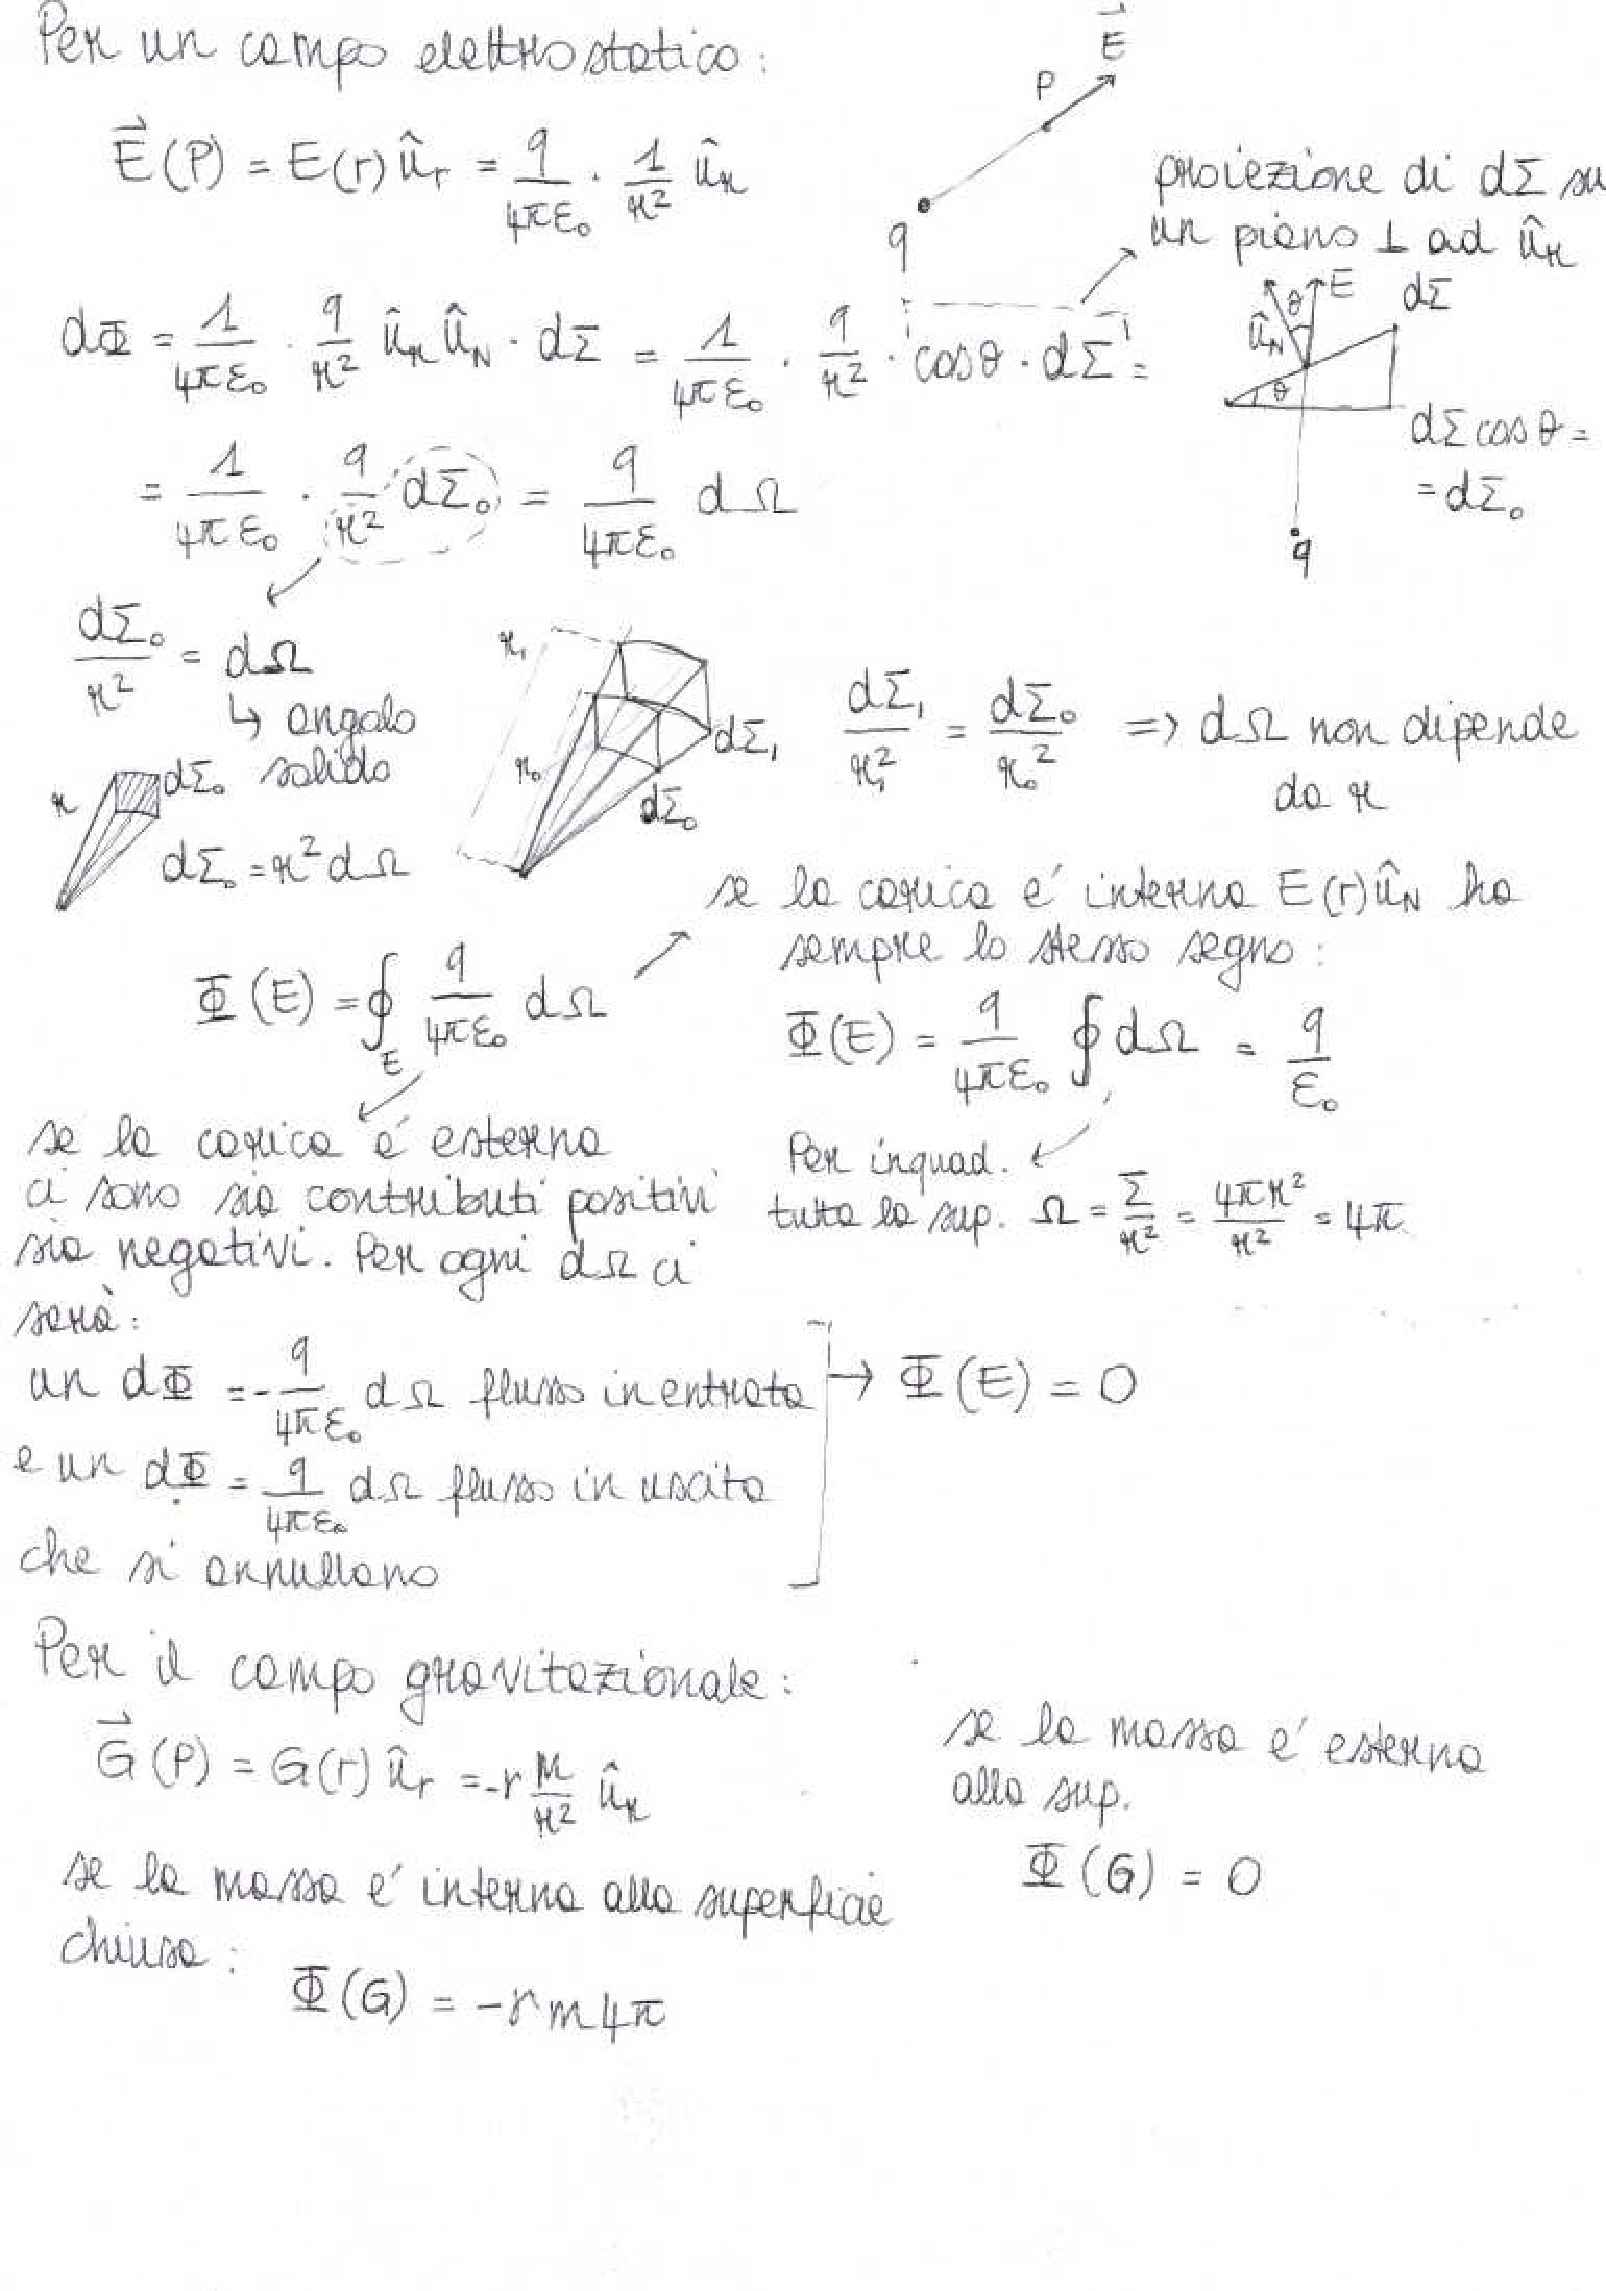 Per un campo elettrostatico:
E⃗
P
q
E⃗(P) = E(r) û_r = q/(4πε₀) · 1/r² û_r
proiezione di dΣ su
un piano ⊥ ad û_r
dΦ = 1/(4πε₀) · q/r² û_r û_N · dΣ = 1/(4πε₀) · q/r² · cosθ · dΣ =
û_N θ E dΣ
θ
dΣ cosθ =
= dΣ₀
q
= 1/(4πε₀) · q/r² dΣ₀ = q/(4πε₀) dΩ
dΣ₀/r² = dΩ
↳ angolo
solido
r dΣ₀
dΣ₀ = r² dΩ
r₁ r₀ dΣ₁ dΣ₀
dΣ₁/r₁² = dΣ₀/r₀² => dΩ non dipende
da r
Φ(E) = ∮_E q/(4πε₀) dΩ
se la carica é interna E(r) û_N ha
sempre lo stesso segno:
Φ(E) = q/(4πε₀) ∮ dΩ = q/ε₀
Per inquad.
tutta la sup. Ω = Σ/r² = 4πr²/r² = 4π
se la carica é esterna
ci sono sia contributi positivi
sia negativi. Per ogni dΩ ci
sarà:
un dΦ = -q/(4πε₀) dΩ flusso in entrata
e un dΦ = q/(4πε₀) dΩ flusso in uscita
che si annullano
→ Φ(E) = 0
Per il campo gravitazionale:
G⃗(P) = G(r) û_r = -γ m/r² û_r
se la massa é interna alla superficie
chiusa: Φ(G) = -γ m 4π
se la massa é esterna
alla sup.
Φ(G) = 0